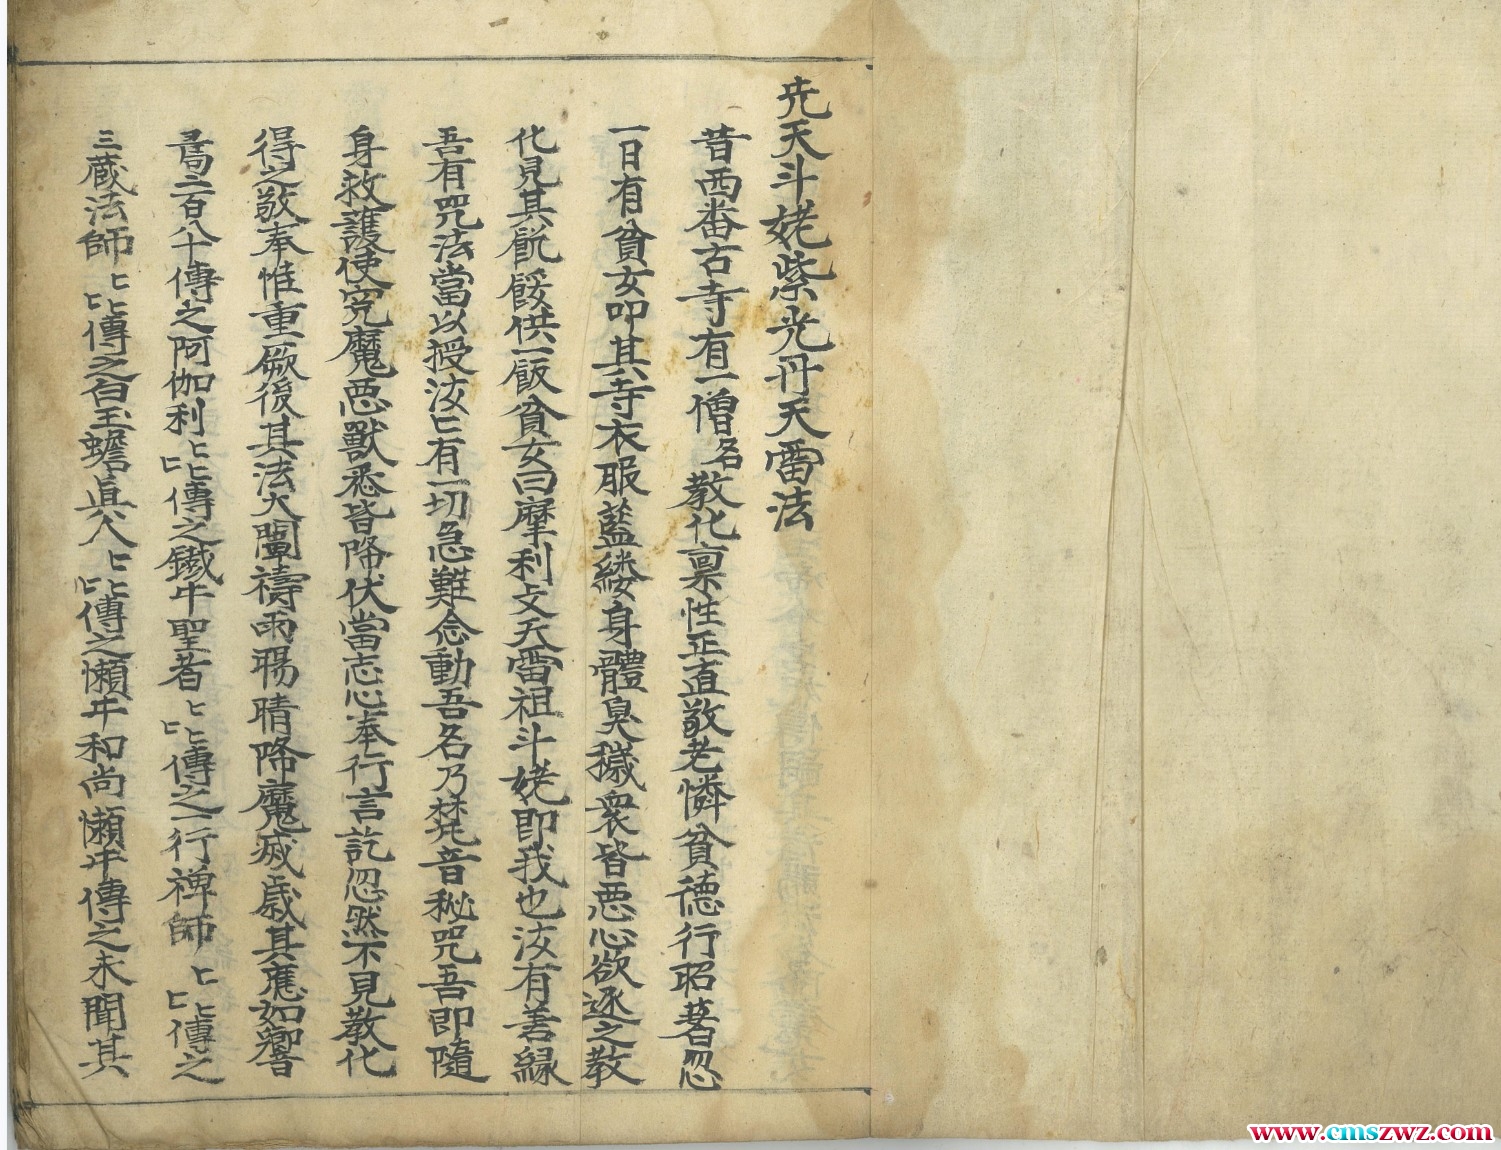 先天斗姥紫光丹天雷法
昔西畨古寺有一僧名教化稟性正直敬老憐貧德行昭著忽
一日有貧女叩其寺衣服藍縷身體臭穢衆皆惡心欲逐之教
化見其飢餒供一飯貧女曰摩利攴天雷祖斗姥即我也汝有善緣
吾有咒法當以授汝匕有一切急難念動吾名乃梵音秘咒吾即隨
身救護使寃魔惡獸悉皆降伏當志心奉行言訖忽然不見教化
得之敬奉惟重厥後其法大闡禱雨暘晴降魔滅歳其應如響
二百八十傳之阿伽利匕匕匕傳之鐵牛聖者匕匕匕傳之一行禅師匕匕匕傳之
三蔵法師匕匕匕傳之白玉蟾眞人匕匕匕傳之懶牛和尚懶牛傳之未聞其
www.cmszwz.com